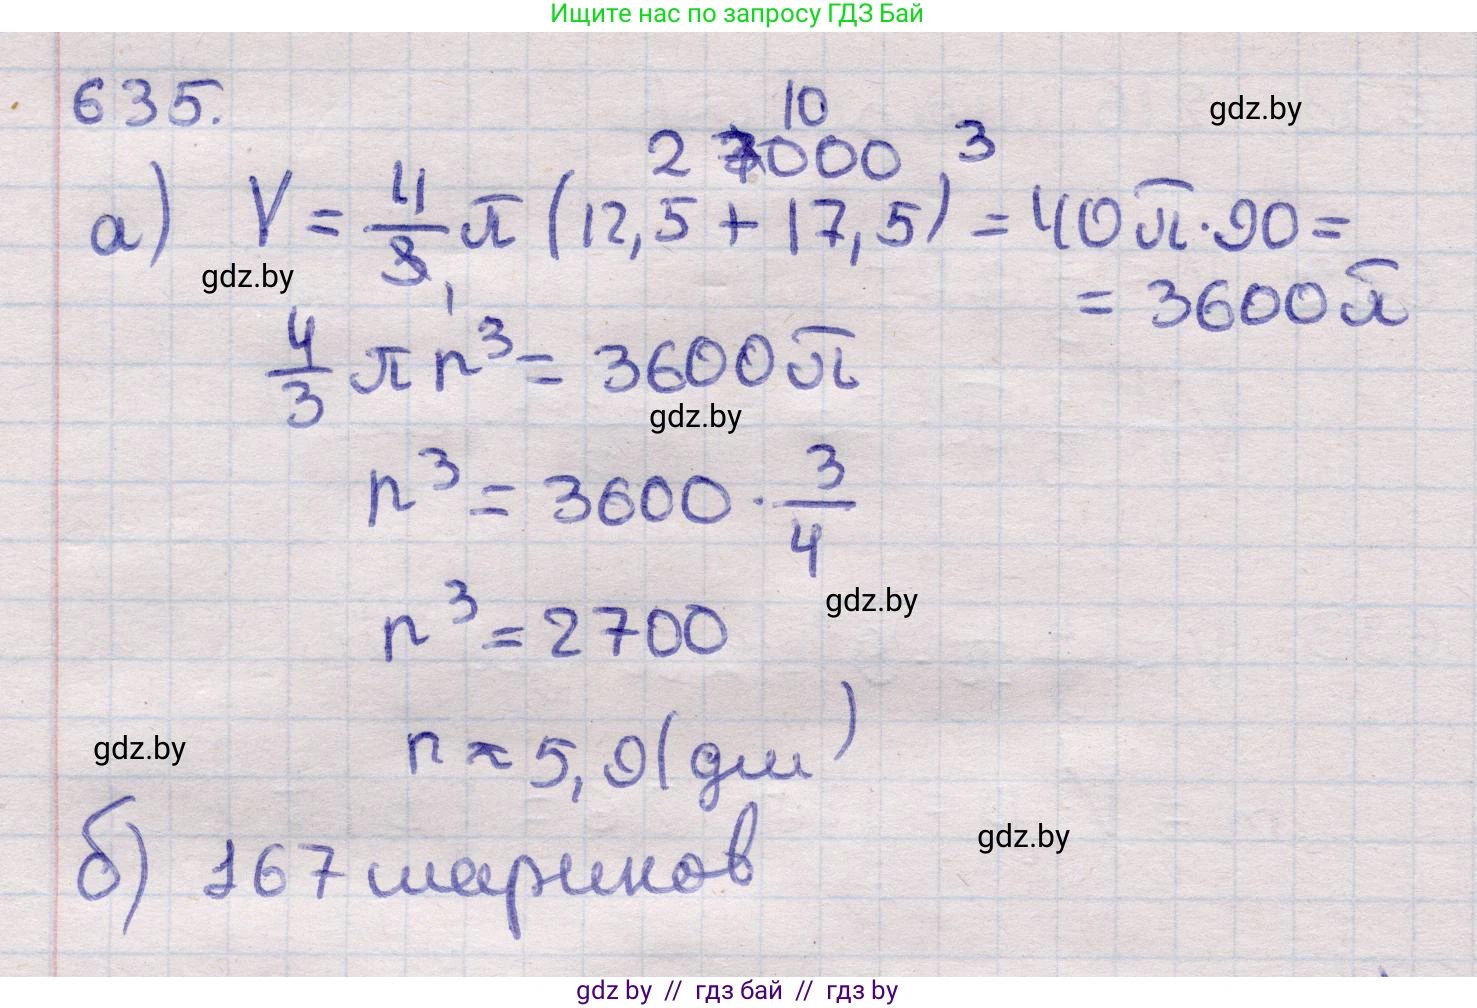 Ищите нас по запросу ГДЗ Бай
635.
10
gdz.by
27000
3
а) V = 4/3 π (12,5 + 17,5) = 40π · 90 =
gdz.by
1
= 3600π
4/3 π r³ = 3600π
gdz.by
r³ = 3600 · 3/4
gdz.by
r³ = 2700
gdz.by
r ≈ 5,9 (дм)
gdz.by
б) 167 шариков
gdz by // гдз бай // гдз by